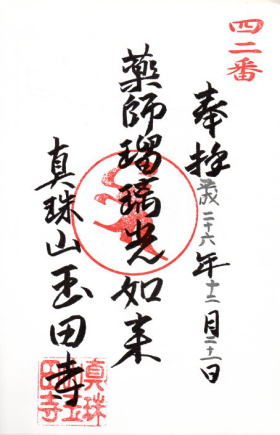 四二番
奉拝 平成二十六年十二月二十一日
薬師瑠璃光如来
真珠山玉田寺
真珠山玉田寺